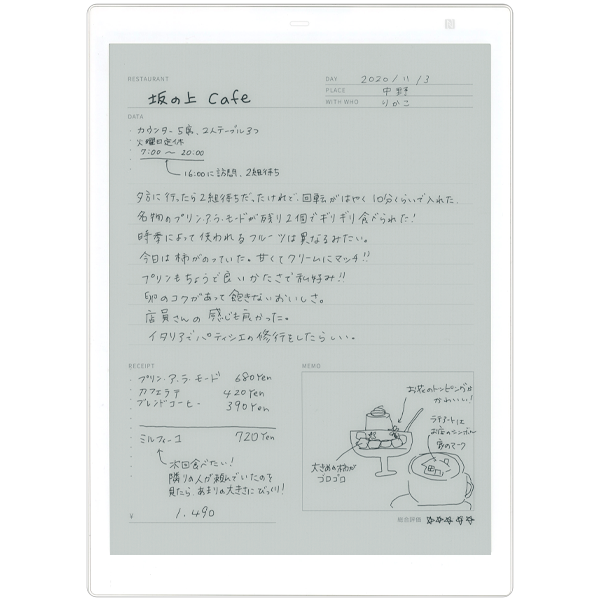 RESTAURANT
坂の上 Cafe
DAY 2020/11/3
PLACE 中野
WITH WHO りかこ
DATA
・カウンター5席、2人テーブル3つ
・火曜日定休
・7:00〜20:00
16:00に訪問、2組待ち
夕方に行ったら2組待ちだったけれど、回転がはやく10分くらいで入れた。
名物のプリン・ア・ラ・モードが残り2個でギリギリ食べられた!
時季によって使われるフルーツは異なるみたい。
今日は柿がのっていた。甘くてクリームにマッチ!!
プリンもちょうど良いかたさで私好み!!
卵のコクがあって飽きないおいしさ。
店員さんの感じも良かった。
イタリアでパティシエの修行をしたらしい。
RECEIPT
・プリン・ア・ラ・モード 680Yen
・カフェラテ 420Yen
・ブレンドコーヒー 390Yen
・ミルフィーユ 720Yen
次回食べたい!
隣りの人が頼んでいたのを
見たら、あまりの大きさにびっくり!
¥ 1,490
MEMO
お花のトッピングが
かわいい!
ラテアートは
お店のシンボル
家のマーク
大きめの柿が
ゴロゴロ
総合評価 ☆☆☆☆☆